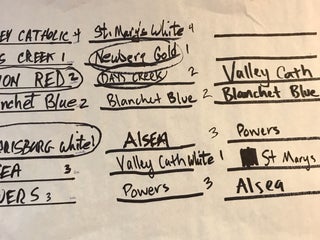 EY CATHOLIC 4 St. Mary's White 4
S CREEK 1 Newberg Gold 1
ON RED 2 DAYS CREEK 2 Valley Cath
nchet Blue 2 Blanchet Blue 2 Blanchet Blue
RISBURG White 1 ALSEA 3 Powers
EA 3 Valley Cath White 1 St Marys
WERS 3 Powers 3 Alsea